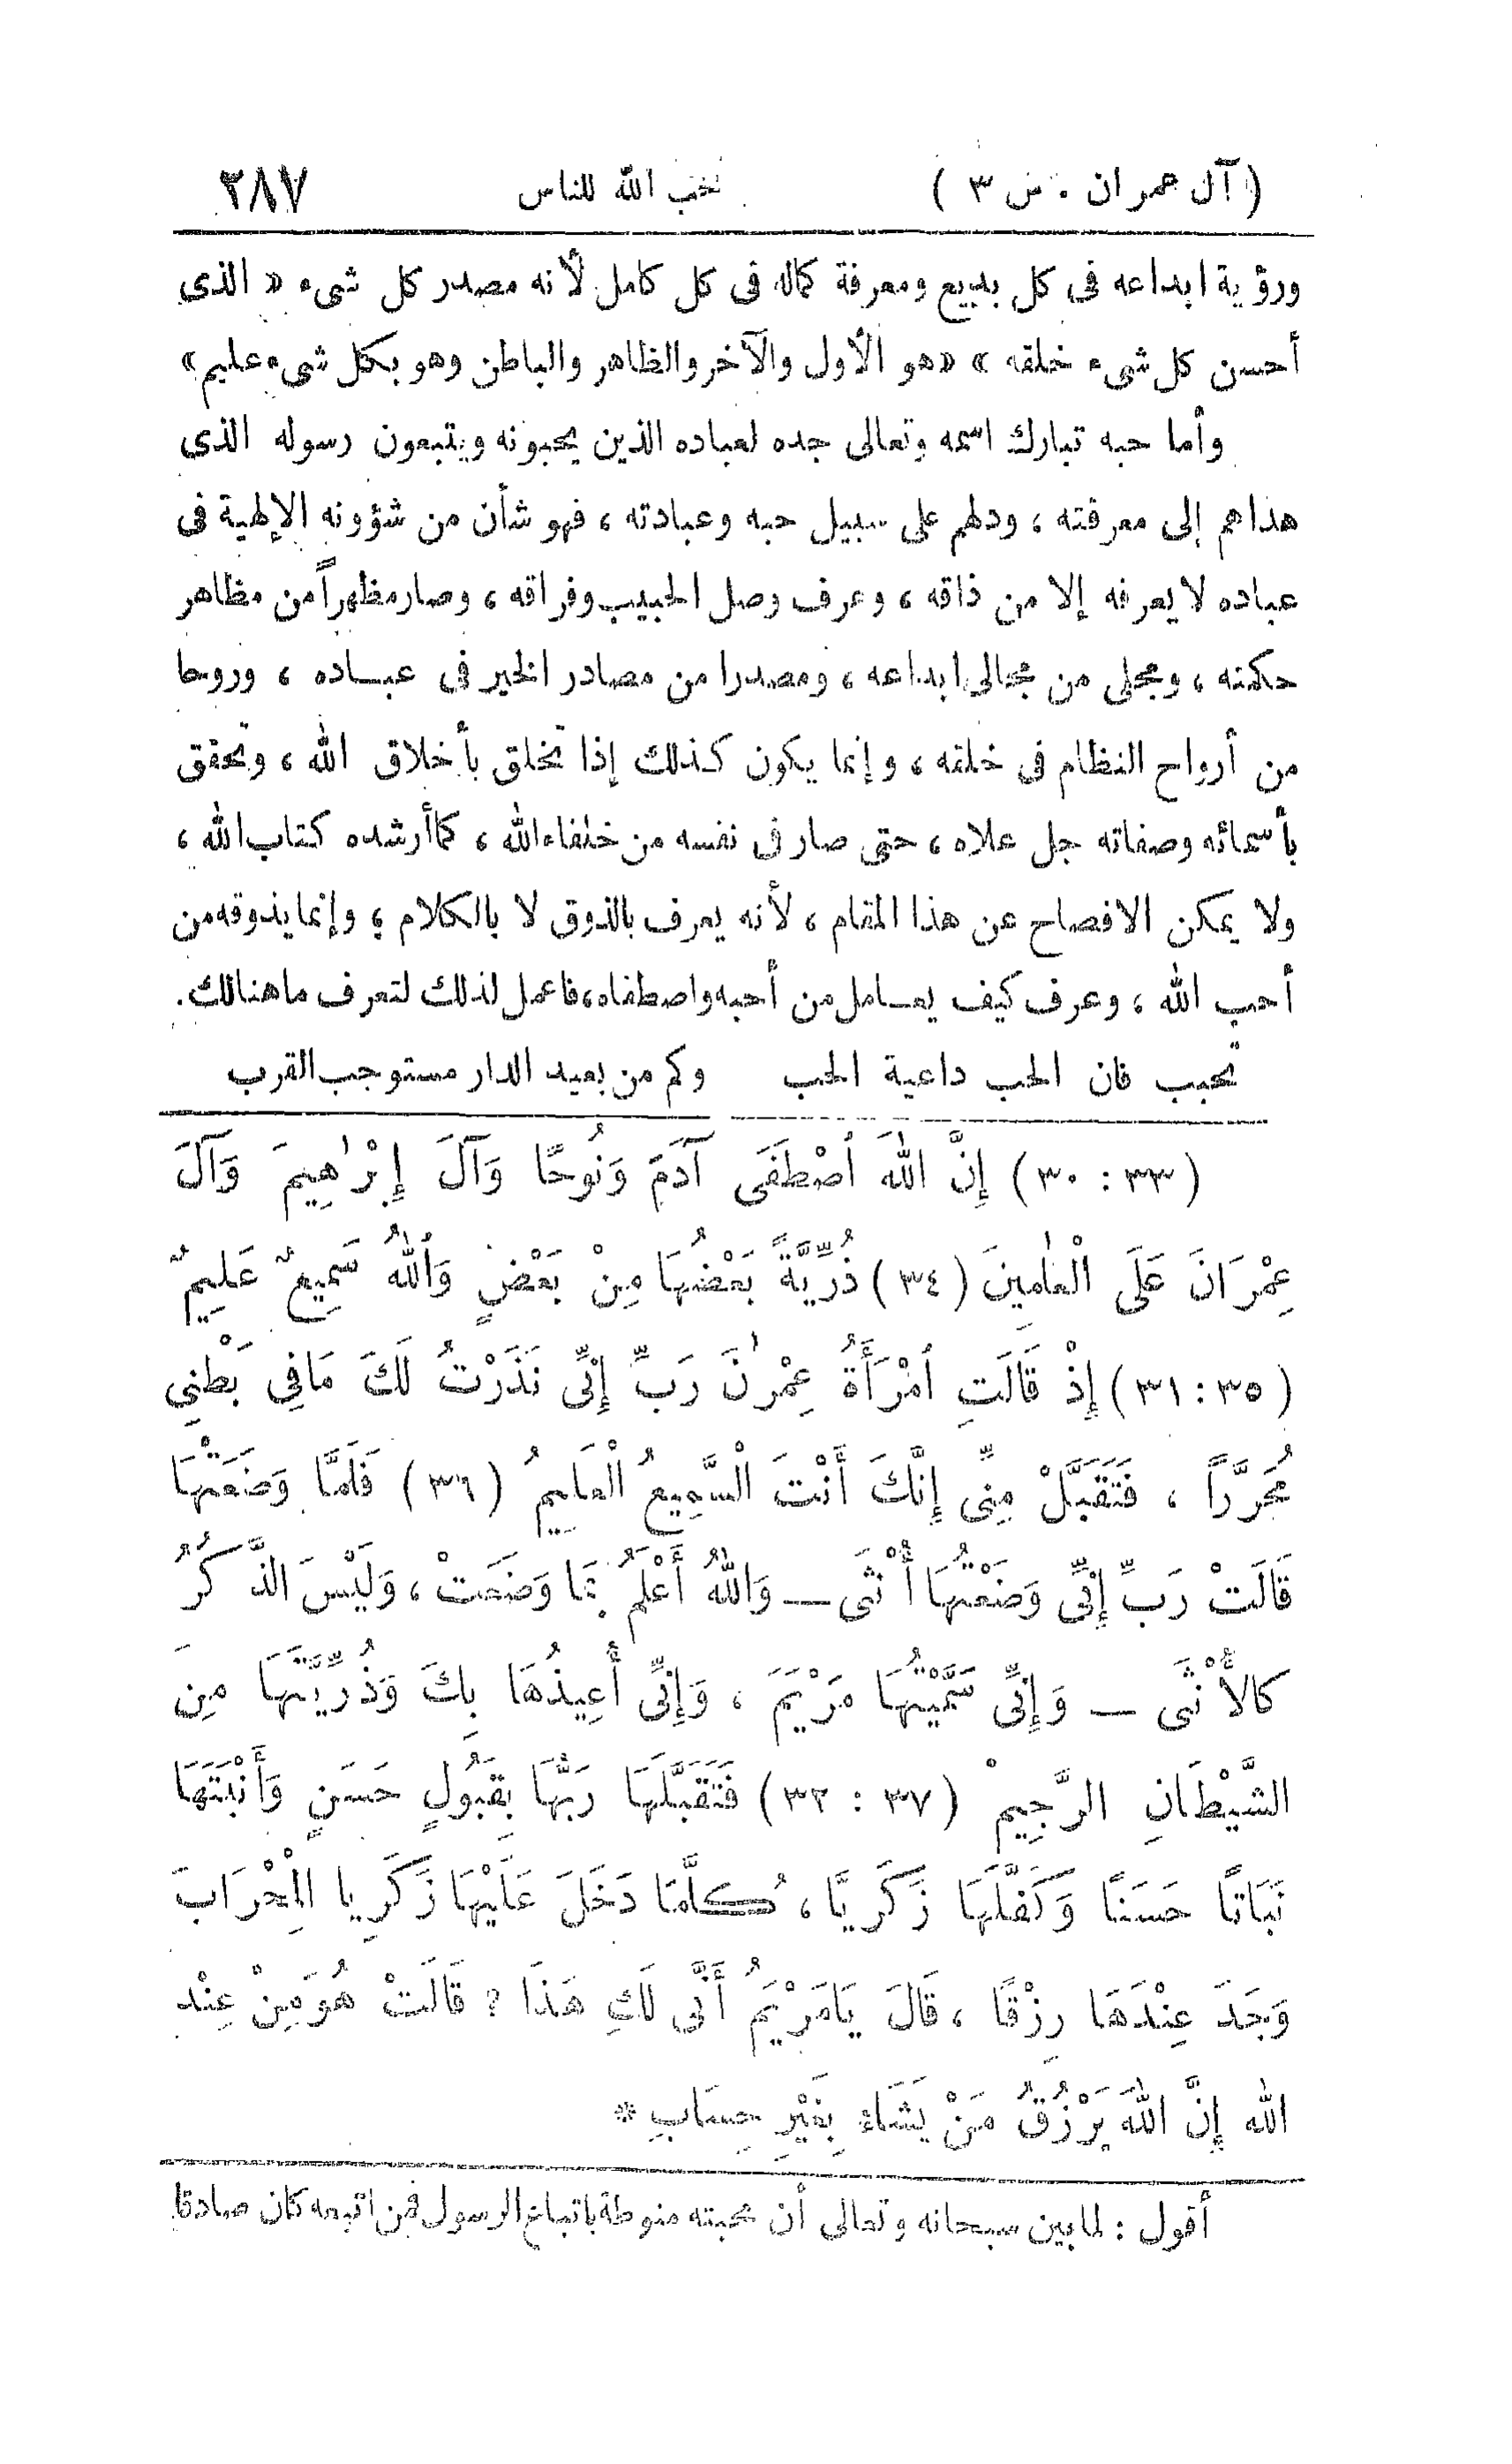 ( آل عمران . س ٣ ) حب الله للناس ٢٨٧
ورؤية ابداعه فى كل بديع ومعرفة كماله فى كل كامل لأنه مصدر كل شىء « الذى
أحسن كل شىء خلقه » «هو الأول والآخر والظاهر والباطن وهو بكل شىء عليم»
وأما حبه تبارك اسمه وتعالى جده لعباده الذين يحبونه ويتبعون رسوله الذى
هداهم إلى معرفته ، ودلهم على سبيل حبه وعبادته ، فهو شأن من شؤونه الإلهية فى
عباده لا يعرفه إلا من ذاقه ، وعرف وصل الحبيب وفراقه ، وصار مظهراً من مظاهر
حكمته ، ومجلى من مجالى ابداعه ، ومصدرا من مصادر الخير فى عباده ، وروحا
من أرواح النظام فى خلقه ، وإنما يكون كذلك إذا تخلق بأخلاق الله ، وتحقق
بأسمائه وصفاته جل علاه ، حتى صار فى نفسه من خلفاء الله ، كما أرشده كتاب الله ،
ولا يمكن الافصاح عن هذا المقام ، لأنه يعرف بالذوق لا بالكلام ، وإنما يذوقه من
أحب الله ، وعرف كيف يعامل من أحبه واصطفاه، فاعمل لذلك لتعرف ما هنالك.
تحبب فان الحب داعية الحب وكم من بعيد الدار مستوجب القرب
(٣٣ : ٣٠) إِنَّ اللهَ اصْطَفَى آدَمَ وَنُوحًا وَآلَ إِبْرٰهِيمَ وَآلَ
عِمْرَانَ عَلَى الْعٰلَمِينَ (٣٤) ذُرِّيَّةً بَعْضُهَا مِنْ بَعْضٍ وَاللهُ سَمِيعٌ عَلِيمٌ
(٣٥ : ٣١) إِذْ قَالَتِ امْرَأَةُ عِمْرٰنَ رَبِّ إِنِّى نَذَرْتُ لَكَ مَا فِي بَطْنِي
مُحَرَّراً ، فَتَقَبَّلْ مِنِّى إِنَّكَ أَنْتَ الْسَّمِيعُ الْعَلِيمُ (٣٦) فَلَمَّا وَضَعَتْهَا
قَالَتْ رَبِّ إِنِّى وَضَعْتُهَا أُنْثَى ــ وَاللهُ أَعْلَمُ بِمَا وَضَعَتْ ، وَلَيْسَ الذَّكَرُ
كالأُنْثَى ــ وَإِنِّى سَمَّيْتُهَا مَرْيَمَ ، وَإِنِّى أُعِيذُهَا بِكَ وَذُرِّيَّتَهَا مِنَ
الشَّيْطَانِ الرَّجِيمْ (٣٧ : ٣٢) فَتَقَبَّلَهَا رَبُّهَا بِقَبُولٍ حَسَنٍ وَأَنْبَتَهَا
نَبَاتًا حَسَنًا وَكَفَّلَهَا زَكَرِيَّا ، كُلَّمَا دَخَلَ عَلَيْهَا زَكَرِيا الْمِحْرَابَ
وَجَدَ عِنْدَهَا رِزْقًا ، قَالَ يَا مَرْيَمُ أَنَّى لَكِ هَذَا ؟ قَالَتْ هُوَ مِنْ عِنْدِ
الله إِنَّ اللهَ يَرْزُقُ مَنْ يَشَاءُ بِغَيْرِ حِسَابٍ *
أقول : لما بين سبحانه وتعالى أن محبته منوطة باتباع الرسول فمن اتبعه كان صادقا